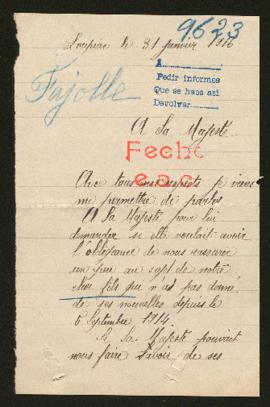 9623
Loupiac le 31 janvier 1916
A
Pedir informes
Que se haga así
Devolver
Fajolle
A Sa Majesté
Fecht
e.a.c.
Avec tous mes respects je viens
me permettre de parler
A Sa Majesté pour lui
demander si elle voulait avoir
l'obligeance de nous rassurer
un peu au sujet de notre
cher fils qui n'as pas donné
de ses nouvelles depuis le
6 Septembre 1914.
Si Sa Majesté pouvait
nous faire savoir de ses